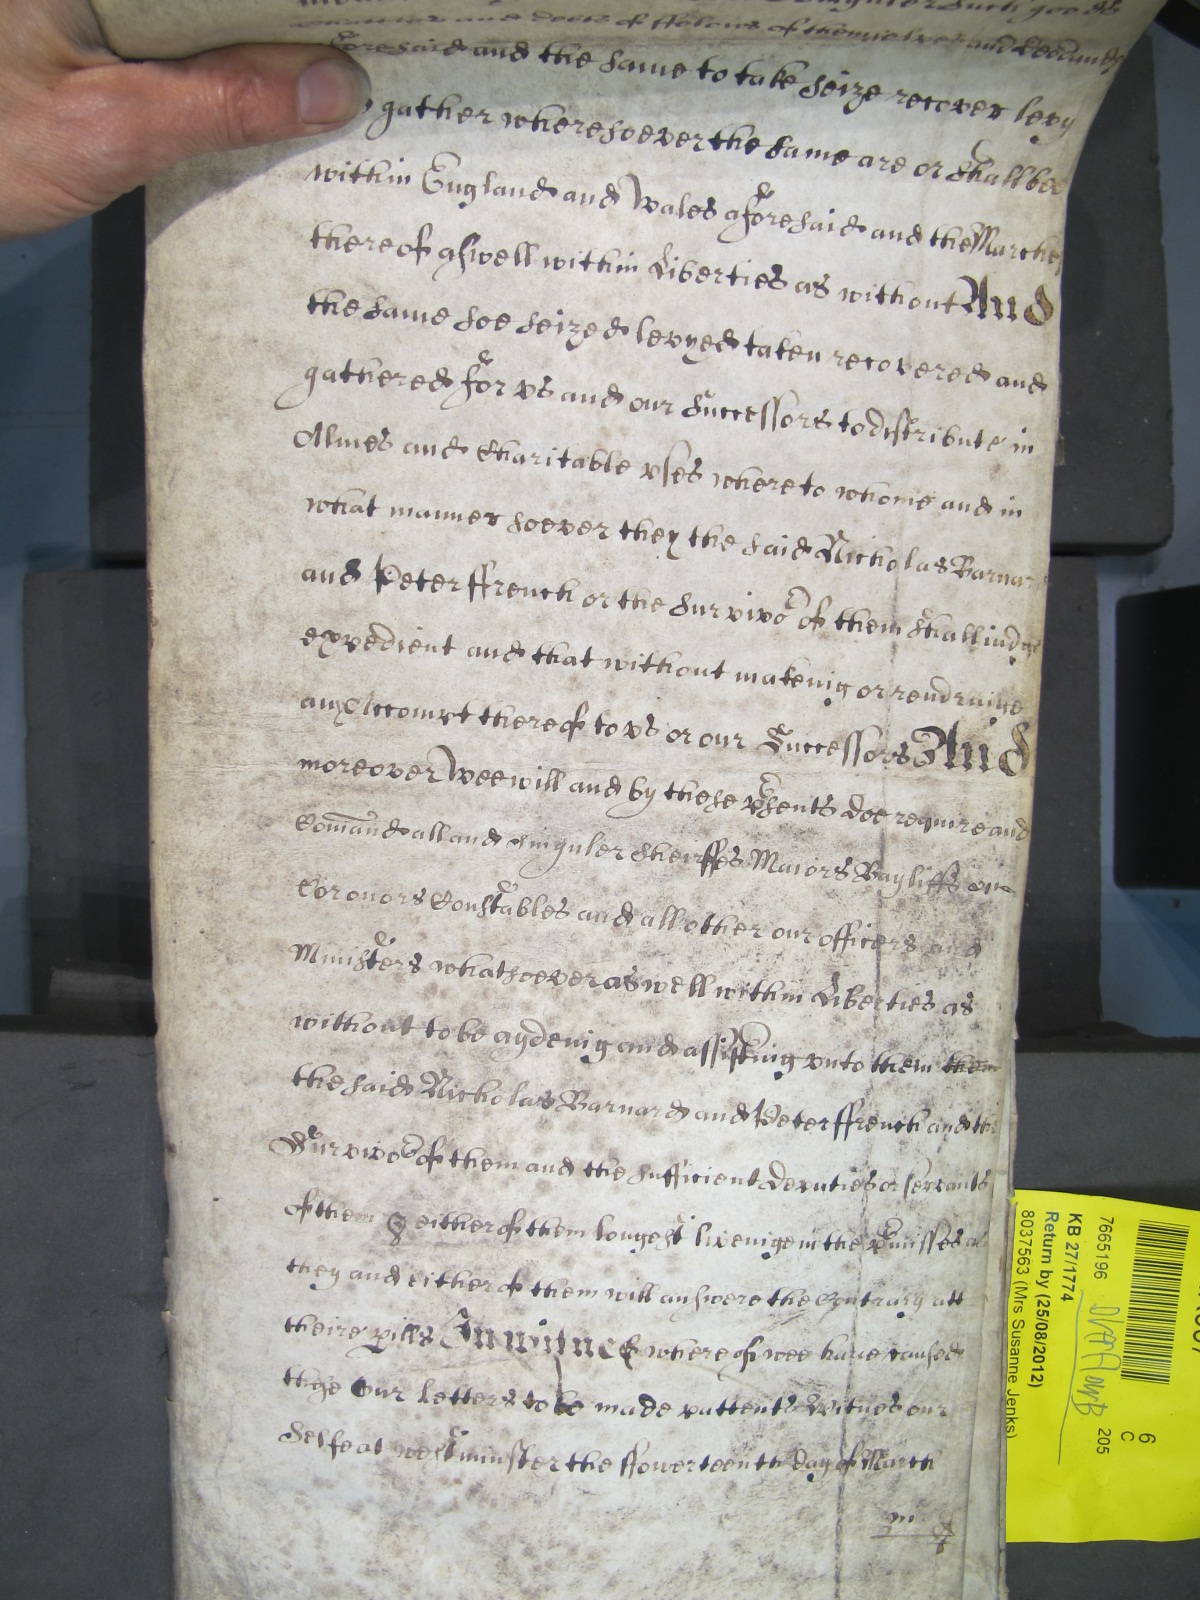 goods
and debts of ffelons of themselves and
aforesaid and the same to take seize recover levy
gather wheresoever the same are or shall bee
within England and Wales aforesaid and the Marches
thereof aswell within Liberties as without And
the same soe seized levyed taken recovered and
gathered for vs and our Successors to distribute in
Almes and Charitable vses where to whome and in
what manner soever they the said Nicholas Barnar
and Peter ffrench or the survivor of them shall iudge
expedient and that without makeing or rendringe
any Accompt thereof to vs or our Successors And
moreover Wee will and by these psents doe require and
Comaund all and singuler Sheriffes Maiors Bayliffs
Coronors Constables and all other our officers and
Ministers whatsoever as well within Liberties as
without to be aydeing and assisting vnto them them
the said Nicholas Barnard and Peter ffrench and the
Survivor of them and the sufficient deputies or servants
of them & either of them longest liveinge in the pmisses as
they and either of them will answere the Contrary att
theire pills In witnes whereof wee have caused
these Our letters to be made pattents Witnes our
selfe at westminster the ffowerteenth day of March
m
7665196
KB 27/1774
Return by (25/08/2012)
8037563 (Mrs Susanne Jenks)
6
C
205